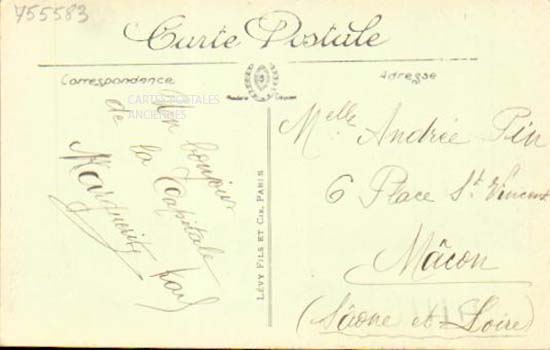 755583
Carte Postale
Correspondance
Adresse
CARTES POSTALES
ANCIENNES
Un bonjour
de la Capitale
Marguerite
LÉVY FILS ET CIE, PARIS
Melle Andrée Pin
6 Place St Vincent
Mâcon
(Saône et Loire)